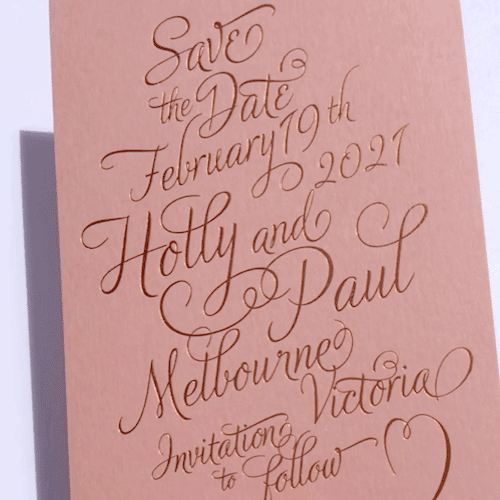 Save
the Date
February 19th
2021
Holly and
Paul
Melbourne
Victoria
Invitation
to follow